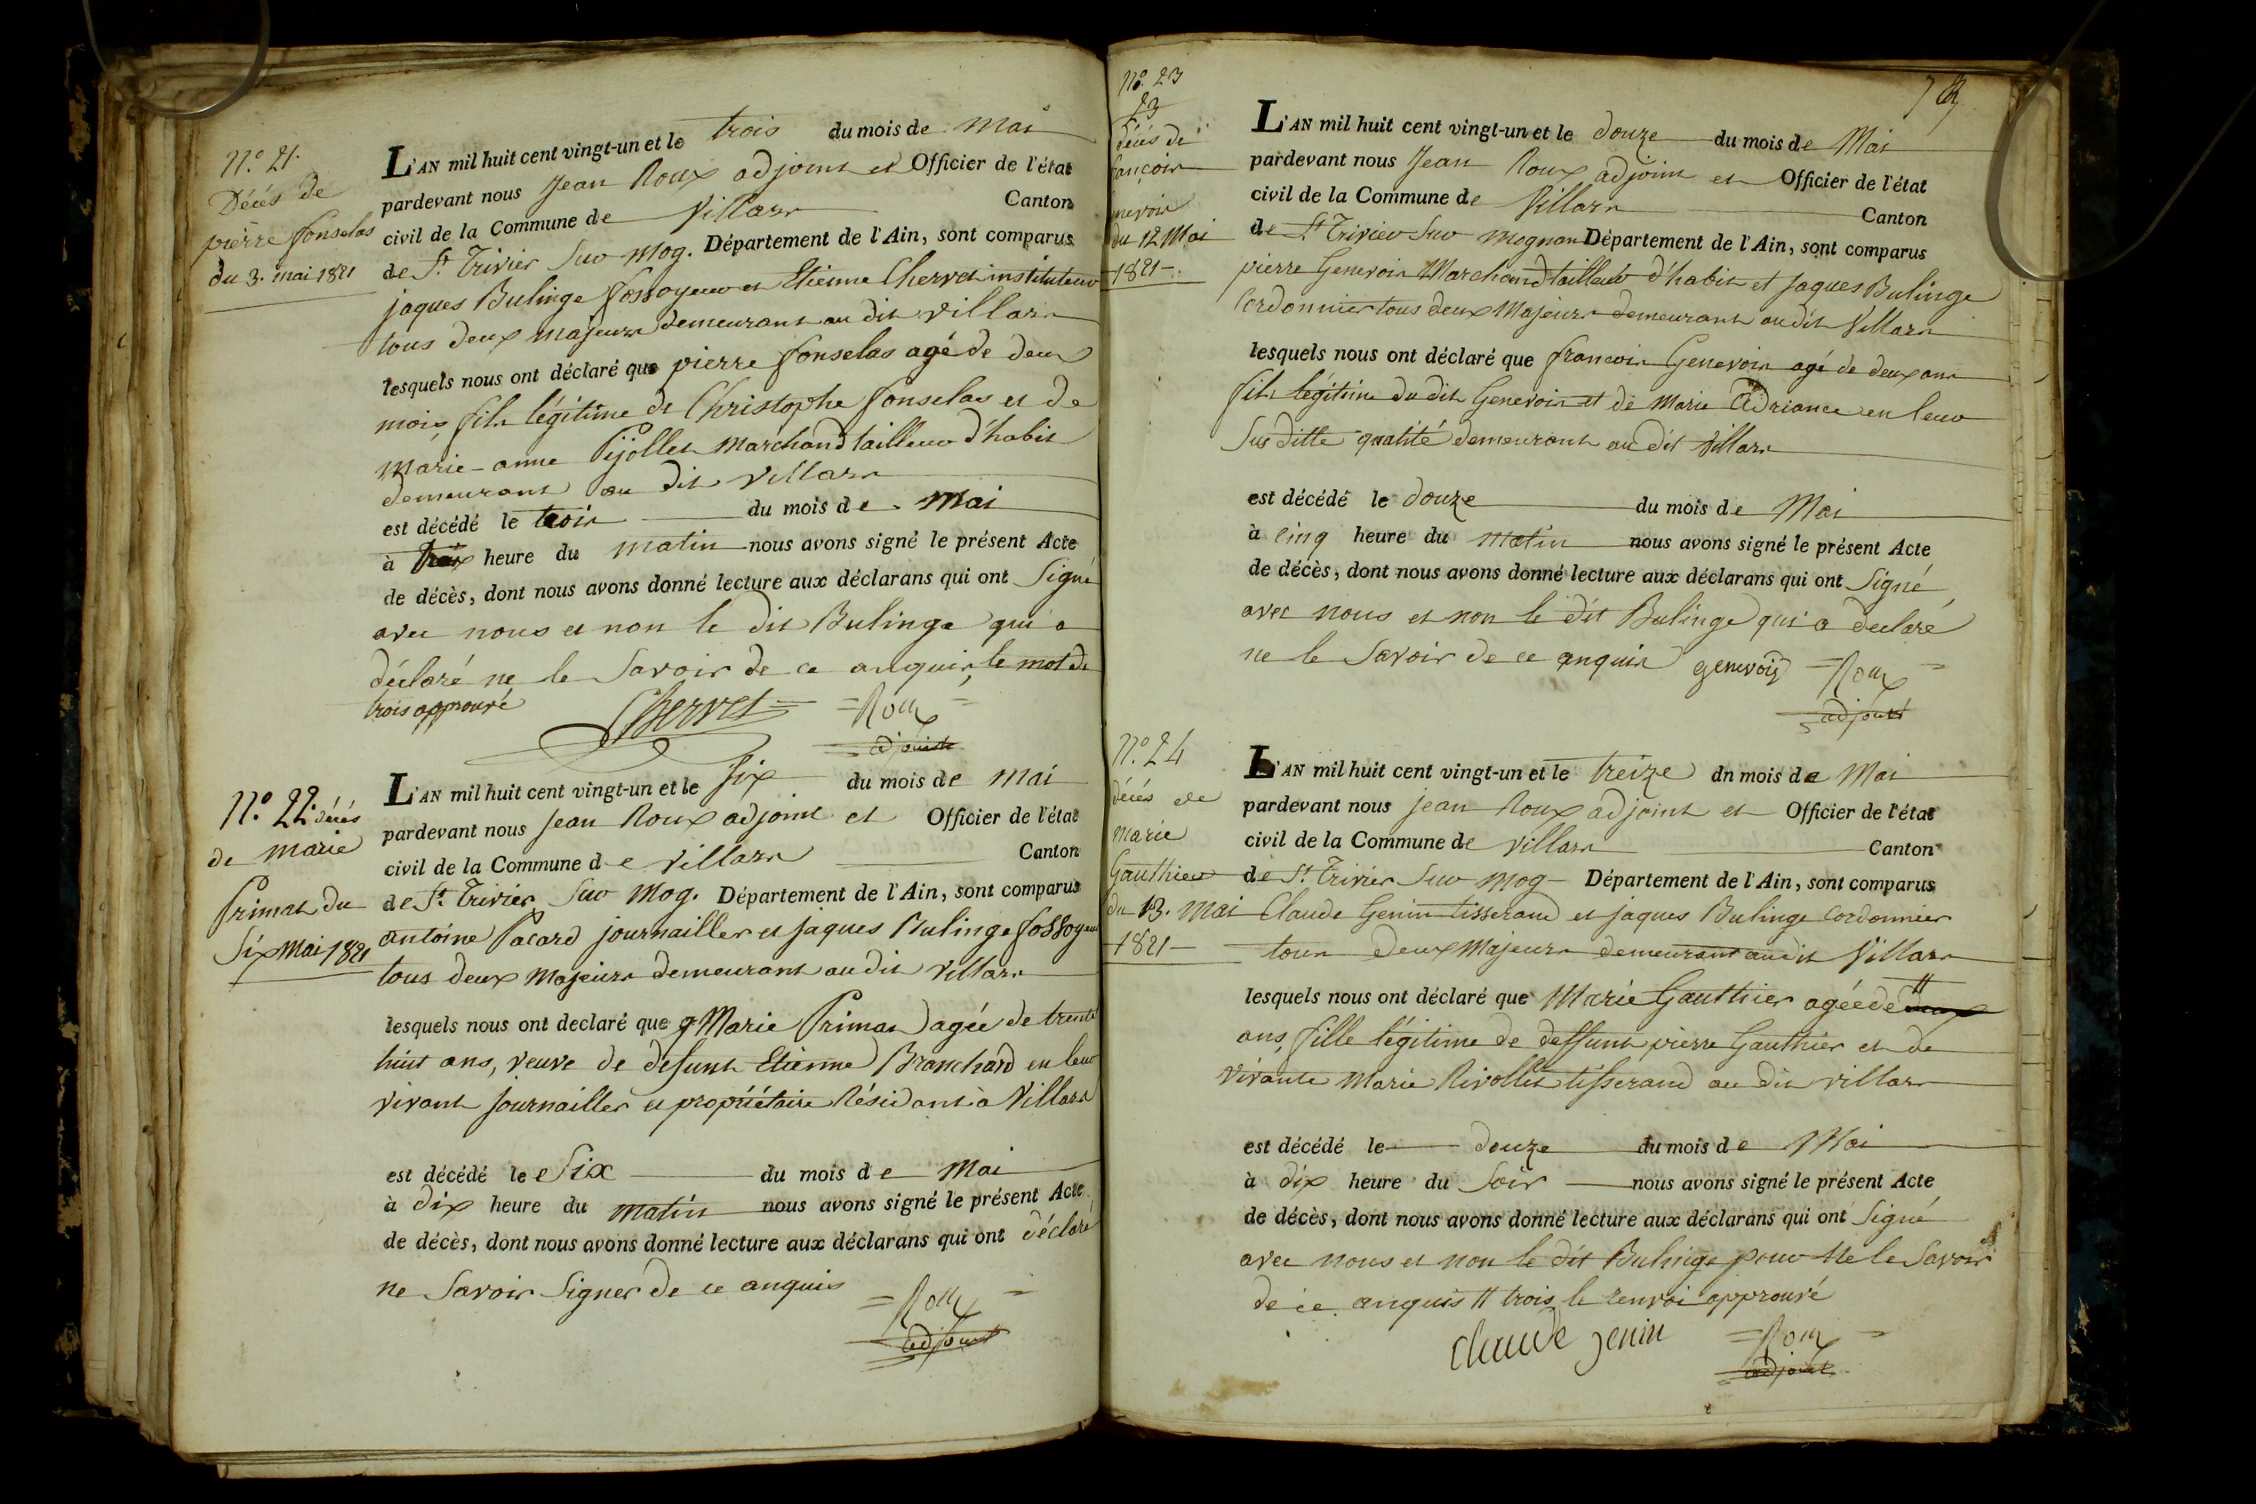 N.° 21.
Décés de
pierre fonselas
du 3. mai 1821
L'AN mil huit cent vingt-un et le trois du mois de mai
pardevant nous Jean Roux adjoint et Officier de l'état
civil de la Commune de Villars Canton
de St. Trivier Sur Mog. Département de l'Ain, sont comparus
jaques Bulinge fossoyeur et Etienne Chervet instituteur
tous deux majeurs demeurant au dit villars
lesquels nous ont déclaré que pierre fonselas agé de deux
mois, fils légitime de Christophe fonselas et de
Marie-anne Pijollet marchand tailleur d'habit
demeurant au dit villars
est décédé le trois du mois de mai
à heure du matin nous avons signé le présent Acte
de décès, dont nous avons donné lecture aux déclarans qui ont Signé
avec nous et non le dit Bulinge qui a
déclaré ne le Savoir de ce anquis, le mot de
trois approuvé Chervet = Roux =
adjoint
N.° 22. décés
de marie
Primat du
Six Mai 1821
L'AN mil huit cent vingt-un et le Six du mois de mai
pardevant nous Jean Roux adjoint et Officier de l'état
civil de la Commune de villars Canton
de St. Trivier Sur Mog. Département de l'Ain, sont comparus
antoine Pacard journallier et jaques Bulinge fossoyeur
tous deux Majeurs demeurant au dit villars
lesquels nous ont declaré que Marie Primat agée de trente
huit ans, veuve de defunt Etienne Branchard en leur
vivant journallier et propriétaire Résidant à Villars
est décédé le Six du mois de Mai
à dix heure du matin nous avons signé le présent Acte
de décès, dont nous avons donné lecture aux déclarans qui ont déclaré
ne Savoir Signer de ce anquis
= Roux =
adjoint
N.° 23
23
décés de
françois
nevois
du 12 Mai
1821
L'AN mil huit cent vingt-un et le douze du mois de Mai
pardevant nous Jean Roux adjoint et Officier de l'état
civil de la Commune de Villars Canton
de St Trivier Sur Mognan Département de l'Ain, sont comparus
pierre Genevois Marchand tailleur d'habit et jaques Bulinge
Cordonnier tous deux Majeurs demeurant au dit Villars
lesquels nous ont déclaré que francois Genevois agé de deux ans
fils légitime du dit Genevois et de Marie Adriance en leur
Sus ditte qualité demeurant au dit villars
est décédé le douze du mois de Mai
à cinq heure du matin nous avons signé le présent Acte
de décès, dont nous avons donné lecture aux déclarans qui ont Signé
avec nous et non le dit Bulinge qui a declaré
ne le Savoir de ce anquis genevois = Roux =
adjoint
N.° 24
décés de
marie
Gauthier
du 13. mai
1821
L'AN mil huit cent vingt-un et le treize dn mois de Mai
pardevant nous jean Roux adjoint et Officier de l'état
civil de la Commune de villars Canton
de St. Trivier Sur Mog Département de l'Ain, sont comparus
Claude Genin tisserand et jaques Bulinge Cordonnier
tous deux Majeurs demeurant au dit Villars
lesquels nous ont déclaré que Marie Gauthier agée de deux #
ans, fille légitime de deffunt pierre Gauthier et de
vivante Marie Rivollet tisserand au dit villars
est décédé le douze du mois de Mai
à dix heure du Soir nous avons signé le présent Acte
de décès, dont nous avons donné lecture aux déclarans qui ont Signé
avec nous et non le dit Bulinge pour ne le Savoir
de ce anquis # trois, le renvoi approuvé
claude jenin = Roux =
adjoint